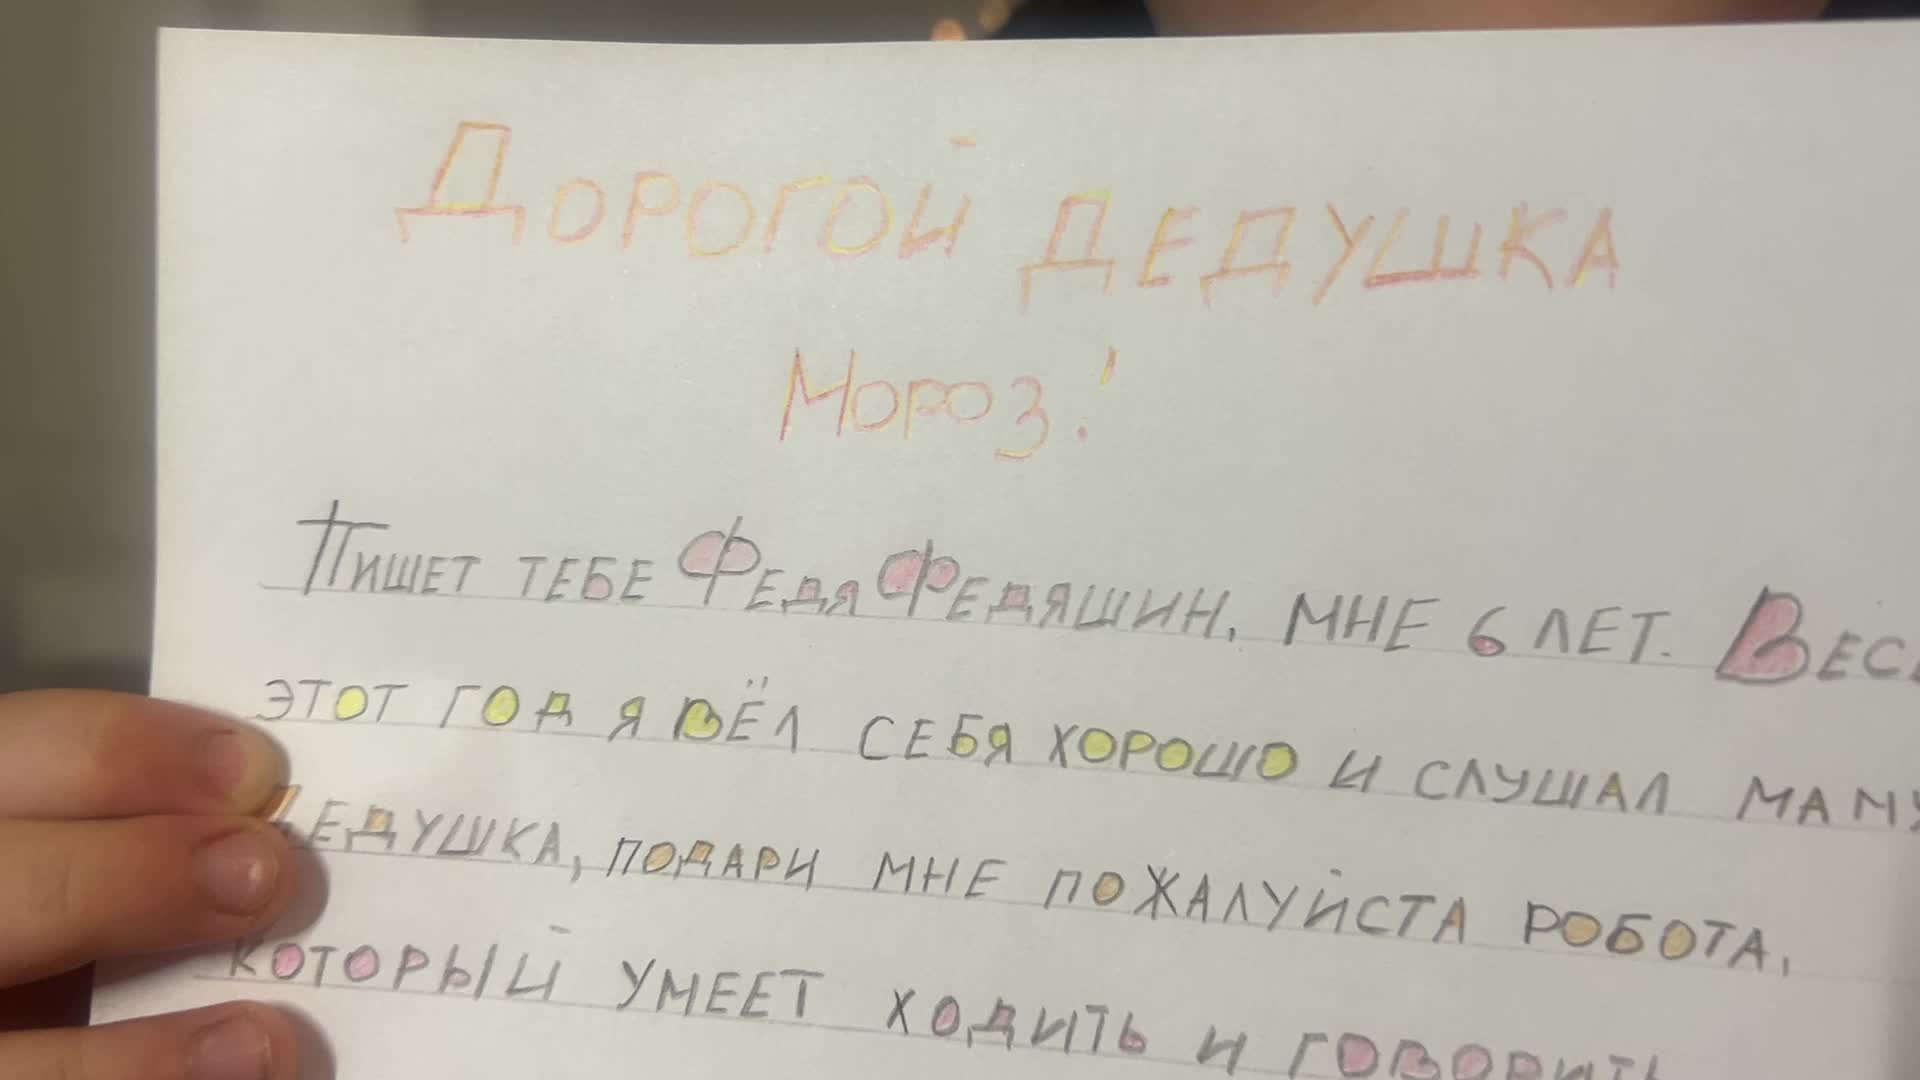 Дорогой дедушка
Мороз!
Пишет тебе Федя Федяшин, мне 6 лет. Весь
этот год я вёл себя хорошо и слушал маму
Дедушка, подари мне пожалуйста робота,
который умеет ходить и говорить